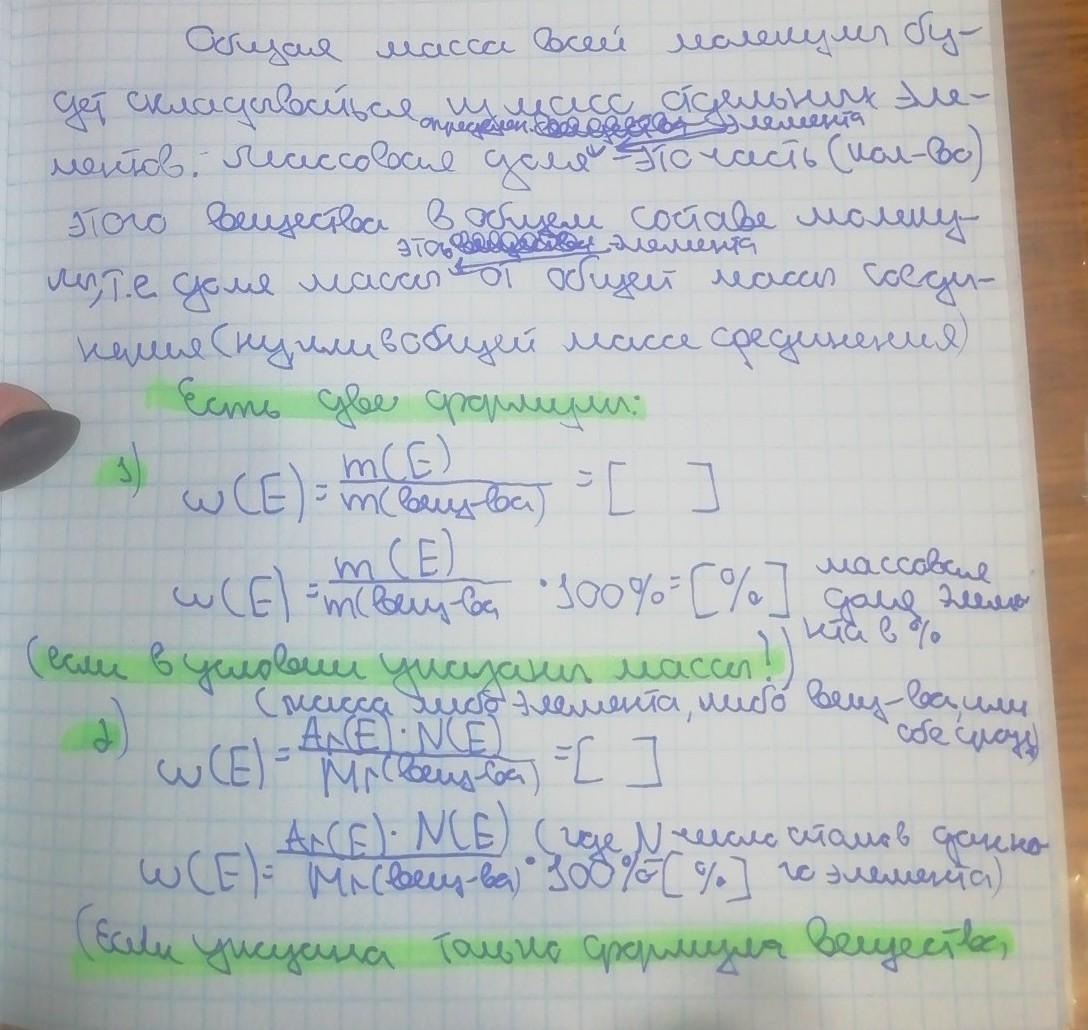 Общая масса всей молекулы бу-
дет складываться из масс отдельных эле-
определен. элемента
ментов. Массовая доля - это часть (кол-во)
этого вещества в общем составе молеку-
этого элемента
лы, т.е доля массы от общей массы соеди-
нения (ну или в общей массе соединения)
Есть две формулы:
1) w(E) = m(E) / m(вещ-ва) = [ ]
w(E) = m(E) / m(вещ-ва · 100% = [%] массовая
доля элеме
нта в %
(если в условии указаны массы!)
(масса либо элемента, либо вещ-ва, или
обе сразу)
2) w(E) = Ar(E) · N(E) / Mr(вещ-ва) = [ ]
w(E) = Ar(E) · N(E) / Mr(вещ-ва) · 100% = [%] (где N число атомов данно
го элемента)
(Если указана только формула вещества,